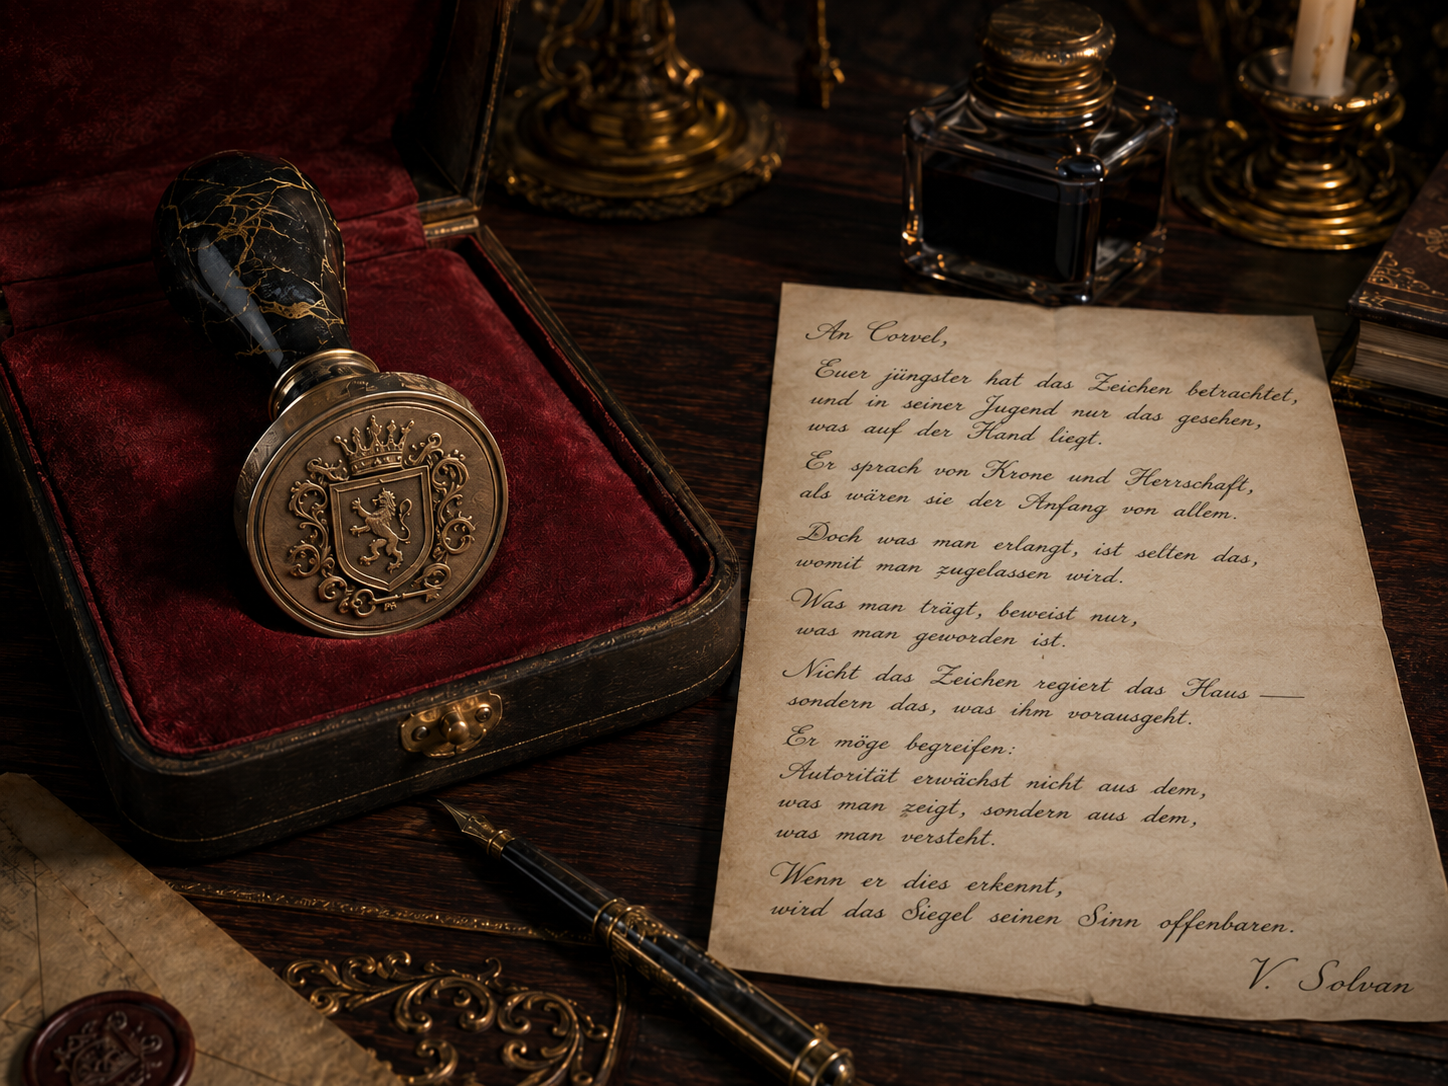 An Corvel,
Euer jüngster hat das Zeichen betrachtet,
und in seiner Jugend nur das gesehen,
was auf der Hand liegt.
Er sprach von Krone und Herrschaft,
als wären sie der Anfang von allem.
Doch was man erlangt, ist selten das,
womit man zugelassen wird.
Was man trägt, beweist nur,
was man geworden ist.
Nicht das Zeichen regiert das Haus —
sondern das, was ihm vorausgeht.
Er möge begreifen:
Autorität erwächst nicht aus dem,
was man zeigt, sondern aus dem,
was man versteht.
Wenn er dies erkennt,
wird das Siegel seinen Sinn offenbaren.
V. Solvan